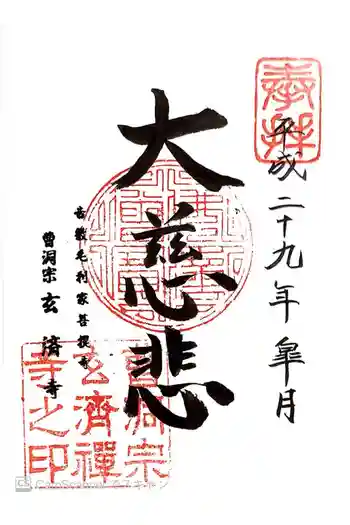 奉拝
平成二十九年皐月
大慈悲
吉敷毛利家菩提寺
曹洞宗 玄済寺
曹洞宗
玄濟禪
寺之印
CamScanner でスキャン